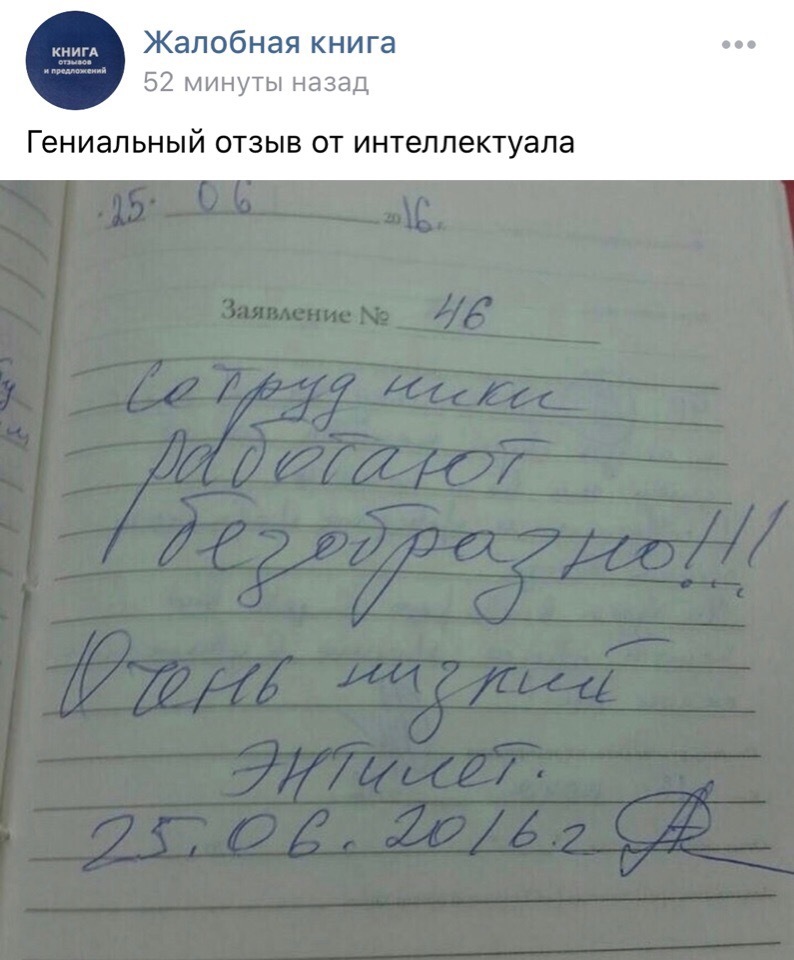 КНИГА
отзывов
и предложений
Жалобная книга
52 минуты назад
Гениальный отзыв от интеллектуала
25. 06 2016г.
Заявление № 46
Сотрудники
работают
безобразно!!!
Очень низкий
энтилет.
25.06.2016.г